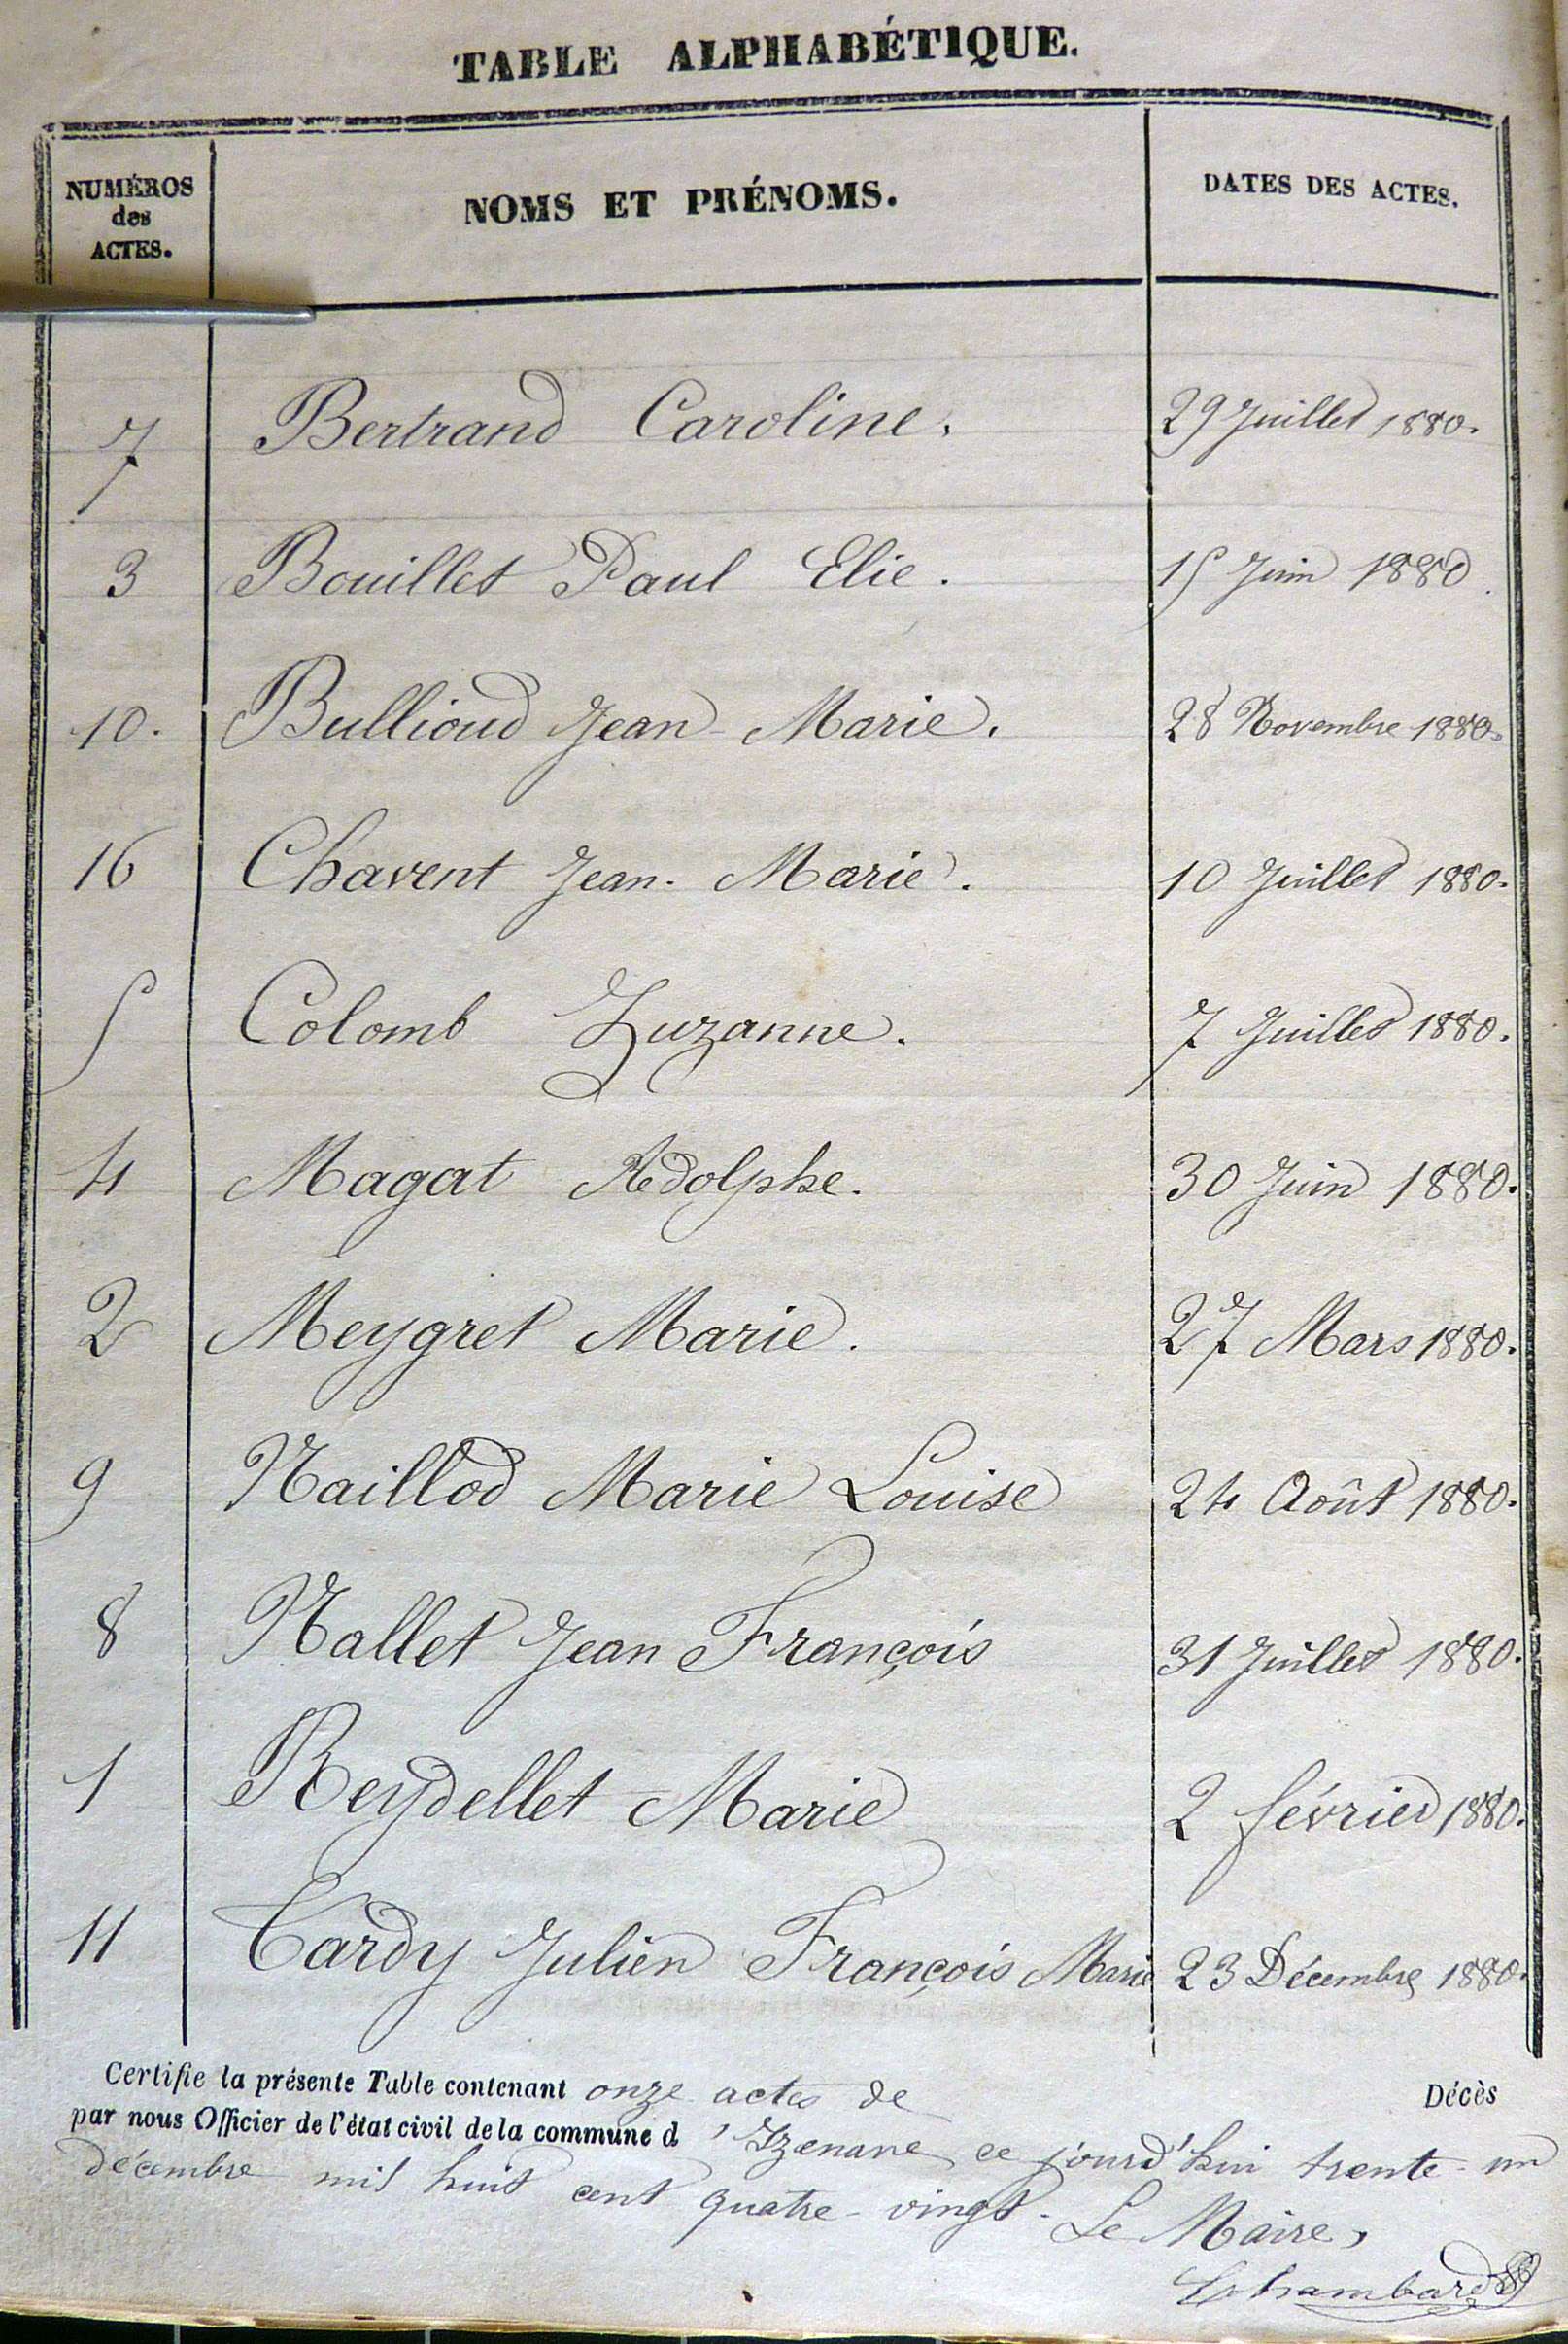 TABLE ALPHABÉTIQUE.
NUMÉROS des ACTES. NOMS ET PRÉNOMS. DATES DES ACTES.
7 Bertrand Caroline. 29 Juillet 1880.
3 Bouillet Paul Elie. 15 Juin 1880.
10. Bullioud Jean-Marie. 28 Novembre 1880.
16 Chavent Jean-Marie. 10 Juillet 1880.
5 Colomb Suzanne. 7 Juillet 1880.
4 Magat Adolphe. 30 Juin 1880.
2 Meygret Marie. 27 Mars 1880.
9 Naillod Marie Louise 24 Août 1880.
8 Nallet Jean François 31 Juillet 1880.
1 Reydellet Marie 2 février 1880.
11 Tardy Julien François Marie 23 Décembre 1880.
Certifie la présente Table contenant onze actes de Décès
par nous Officier de l'état civil de la commune d'Izenave ce jourd'hui trente-un
décembre mil huit cent quatre-vingt. Le Maire,